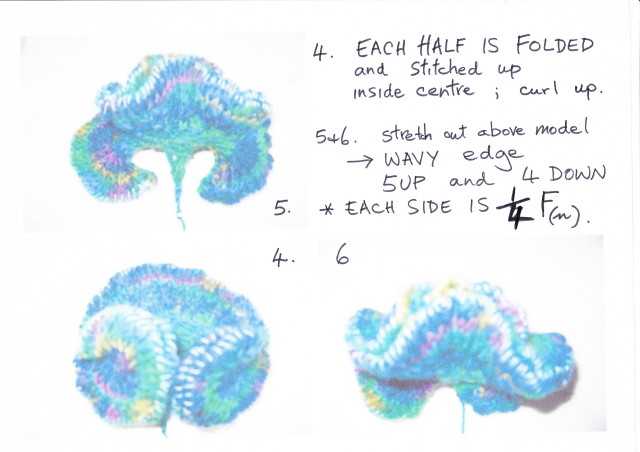 4. EACH HALF IS FOLDED
and stitched up
inside centre ; curl up.
5+6. stretch out above model
→ WAVY edge
5UP and 4 DOWN
* EACH SIDE IS 1/4 F(n).
5.
4.
6